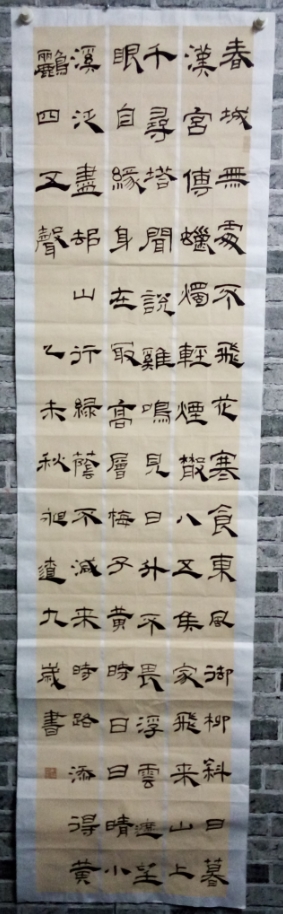 春城無處不飛花寒食東風御柳斜日暮
漢宮傳蠟燭輕煙散入五侯家飛来山上
千尋塔聞說雞鳴見日升不畏浮雲遮望
眼自緣身在最高層梅子黃時日日晴小
溪泛盡却山行綠蔭不減来時路添得黃
鸝四五聲 乙未秋旭九歲書